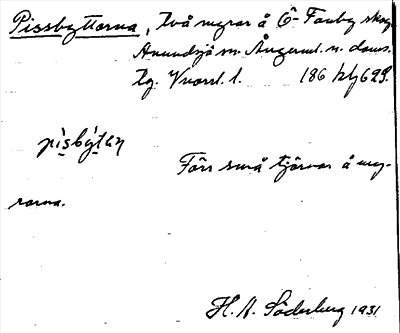 Pissbyttorna, Två myrar å Ö-Fanby skog
Anundsjö sn. Ångerml. n. doms.
Tg. Vnorrl. l. 186
pisbýtan
Förr små tjärnar å myr-
rarna.
H. A. Söderberg 1931